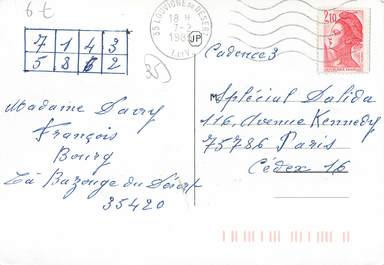 6 €
7 1 4 3
5 8 6 2
35)
35 LOUVIGNE DU DESERT
18 H
7-3
I.&V.
JP
2,10
Cadence 3
Spécial Dalida
116, Avenue Kennedy
75786 Paris
Cédex 16
Madame Davy
François
Bourg
La Bazouge du Désert
35420